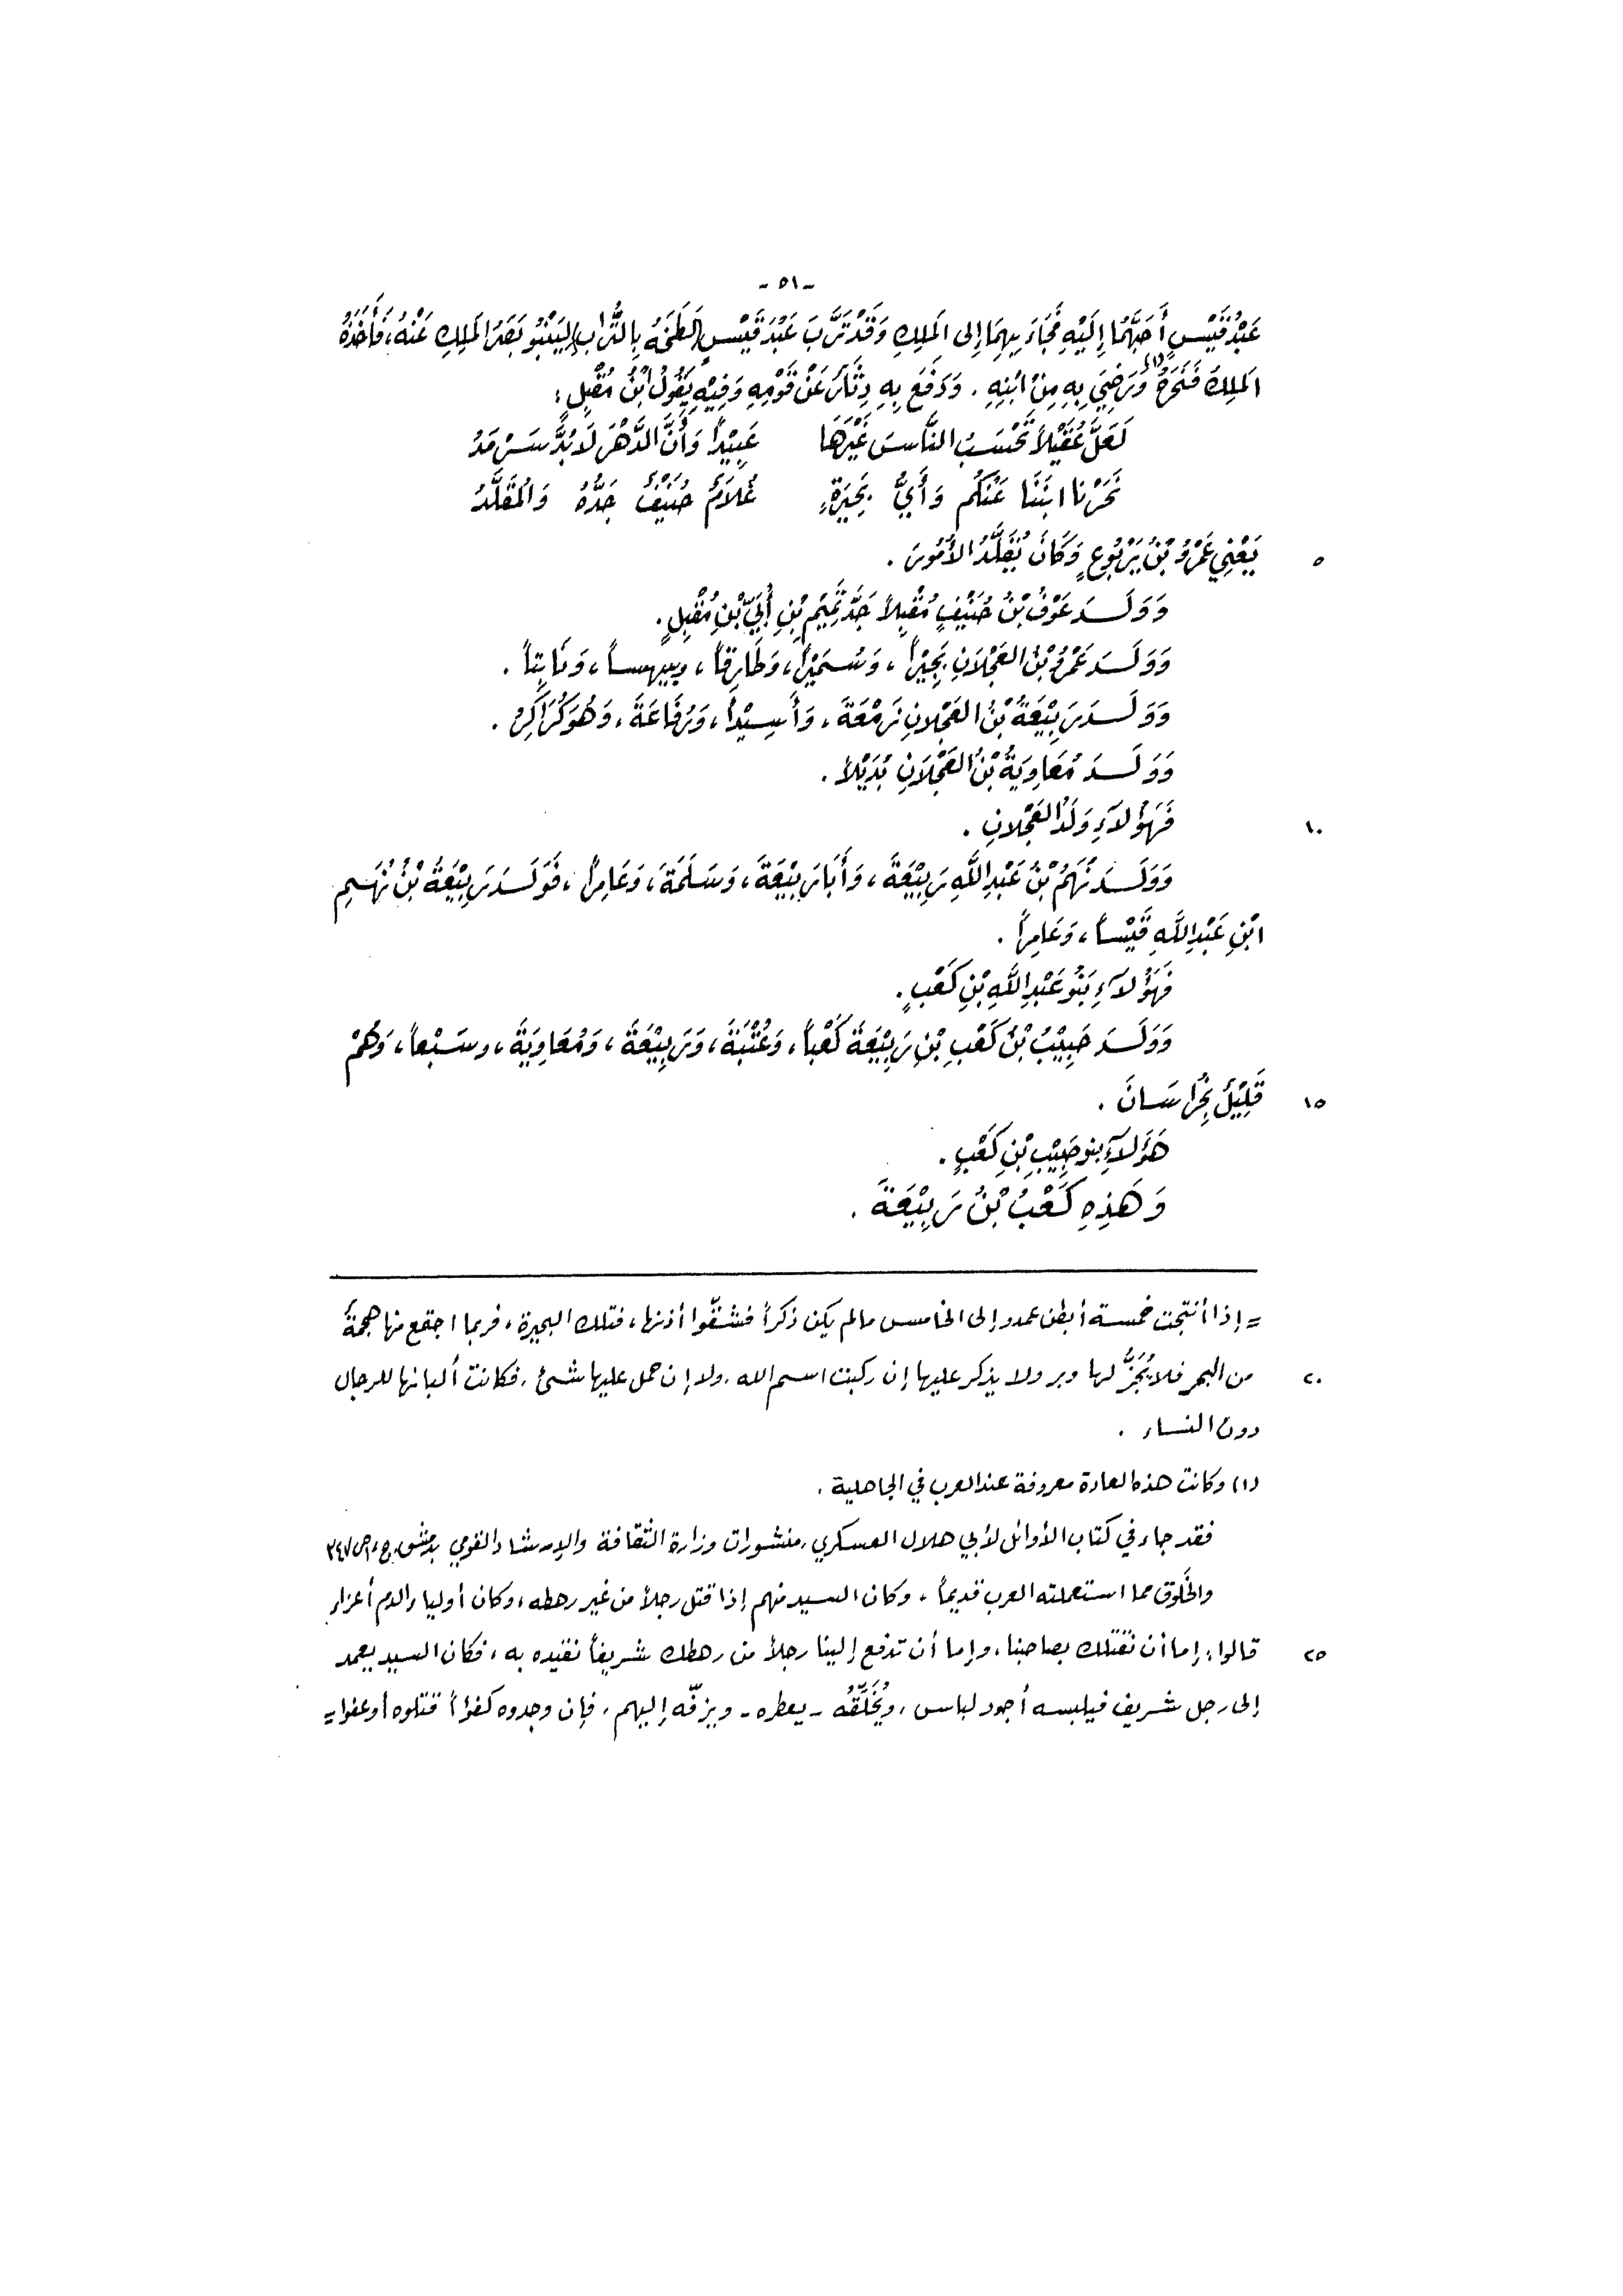 - ٥١ -
عَبْدُ قَيْسٍ أَحَبَّهُمَا إِلَيْهِ فَجَاءَ بِهِمَا إِلى المَلِكِ وَقَدْ تَرَّبَ عَبْدَ قَيْسٍ (لَطَخَهُ بِالتُّرَابِ) لِيَنْبُو بَصَرُ المَلِكِ عَنْهُ، فَأَخَذَهُ
المَلِكُ فَنَحَرَهُ (١) وَرَضِيَ بِهِ مِنْ ابْنِهِ . وَدَفَعَ بِهِ دِثَارَ عَنْ قَوْمِهِ وَفِيْهِ يَقُولُ ابْنُ مُقْبِلٍ :
لَعَلَّ عُقَيْلاً تَحْسَبُ النَّاسَ غَيْرَهَا عَبِيْداً وَأَنَّ الدَّهْرَ لَا بُدَّ سَرْمَدُ
نَحَرْنَا ابنَنَا عَنْكُم وَأَيُّ بَحِيْرَةٍ غُلَامٌ حُنَيْفٌ جَدُّهُ وَالمُقَلَّدُ
يَعْنِي عَمْرُو بْنُ يَرْبُوعٍ وَكَانَ يُقَلَّدُ الأُمُورَ . ٥
وَوَلَدَ عَوْفُ بْنُ حُنَيْفٍ مُقْبِلاً جَدَّ تَمِيْمِ بْنِ أُبَيِّ بْنِ مُقْبِلٍ .
وَوَلَدَ عَمْرُو بْنُ العَجْلَانِ بَجِيْراً ، وَسُمَيْراً ، وَطَارِقاً ، وبيهساً ، وَثَابِتاً .
وَوَلَدَ رَبِيْعَةُ بْنُ العَجْلانِ زَمْعَةَ ، وَأَسِيْداً ، وَرُفَاعَةَ ، وَهُوَ كُرَاكِرُ .
وَوَلَدَ مُعَاوِيَةُ بْنُ العَجْلَانِ بُدَيْلاً .
فَهَؤُلاَءِ وَلَدُ العَجْلانِ . ١٠
وَوَلَدَ نُهَمُ بْنُ عَبْدِ اللَّهِ رَبِيْعَةَ ، وَأَبَا رَبِيْعَةَ ، وَسَلَمَةَ ، وَعَامِراً ، فَوَلَدَ رَبِيْعَةُ بْنُ نُهَمِ
ابْنِ عَبْدِ اللَّهِ قَيْساً ، وَعَامِراً .
فَهَؤُلاَءِ بَنُو عَبْدِ اللَّهِ بْنِ كَعْبٍ .
وَوَلَدَ حَبِيْبُ بْنُ كَعْبِ بْنِ رَبِيْعَةَ كَعْباً ، وَعُتْبَةَ ، وَرَبِيْعَةَ ، وَمُعَاوِيَةَ ، وسَبْعاً ، وَهُمْ
قَلِيْلٌ بِخُرَاسَانَ . ١٥
هَؤُلاَءِ بنو حَبِيْبِ بْنِ كَعْبٍ .
وَهَذِهِ كَعْبُ بْنُ رَبِيْعَةَ .
= إذا أنتجت خمسة أبطن عمدو إلى الخامس مالم يكن ذكراً فشقّوا أذنها ، فتلك البحيرة ، فربما اجتمع منها هجمة
من البحر فلا يُجَزُّ لها وبر ولا يذكر عليها إن ركبت اسم الله ، ولا إن حمل عليها شئ ، فكانت ألبانها للرجال ٢٠
دون النساء .
(١) وكانت هذه العادة معروفة عند العرب في الجاهلية .
فقد جاء في كتاب الأوائل لأبي هلال العسكري ، منشورات وزارة الثقافة والإرشاد القومي بدمشق ، ج ، ١ ص ٣٤٧
والخَلوق مما استعملته العرب قديماً ، وكان السيد منهم إذا قتل رجلاً من غير رهطه ، وكان أولياء الدم أعزاء
قالوا ، إما أن نقتلك بصاحبنا ، وإما أن تدفع إلينا رجلاً من رهطك شريفاً نقيده به ، فكان السيد يعمد ٢٥
إلى رجل شريف فيلبسه أجود لباس ، ويُخَلِّقُه - يعطره - ويزفّه إليهم ، فإن وجدوه كفؤاً قتلوه أو عفوا =